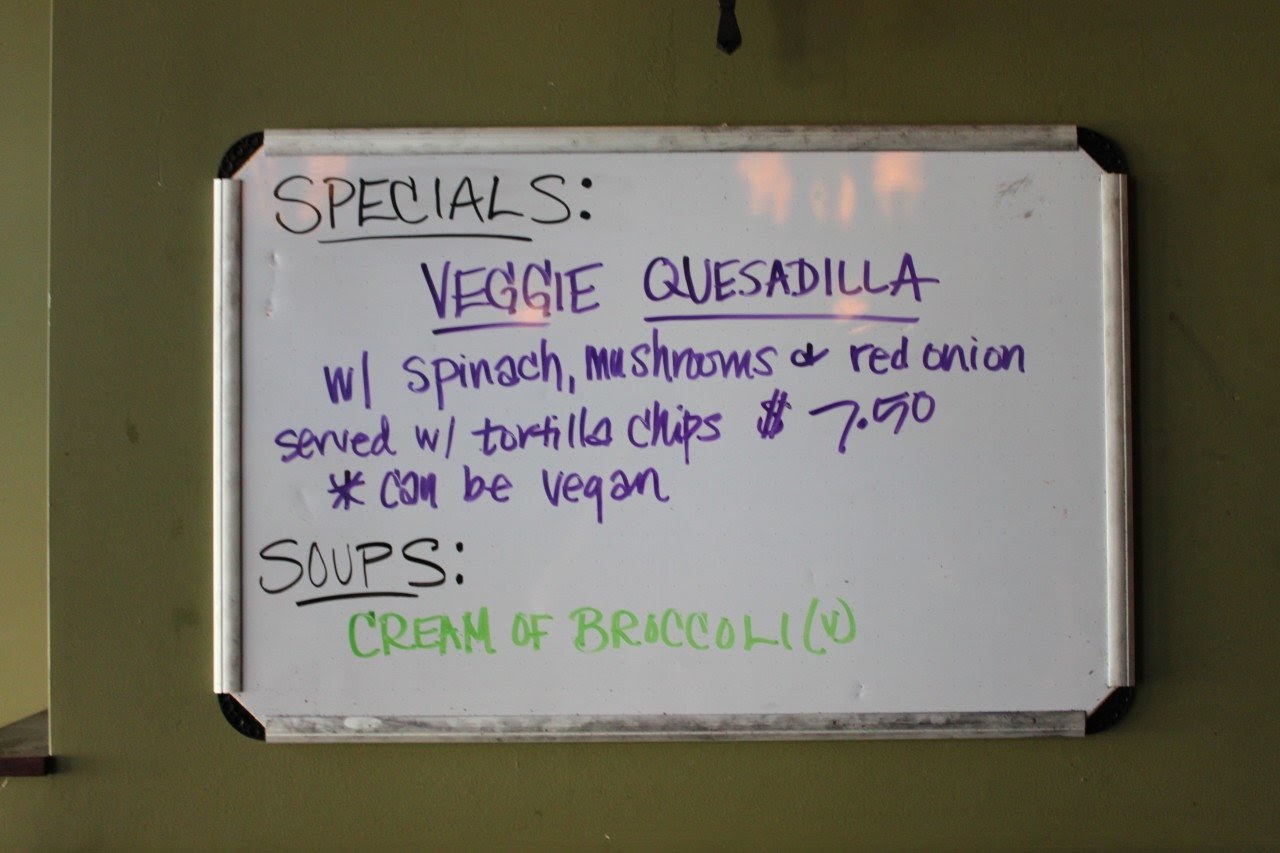 SPECIALS:
VEGGIE QUESADILLA
w/ spinach, mushrooms & red onion
served w/ tortilla chips $ 7.50
* can be vegan
SOUPS:
CREAM OF BROCCOLI (V)